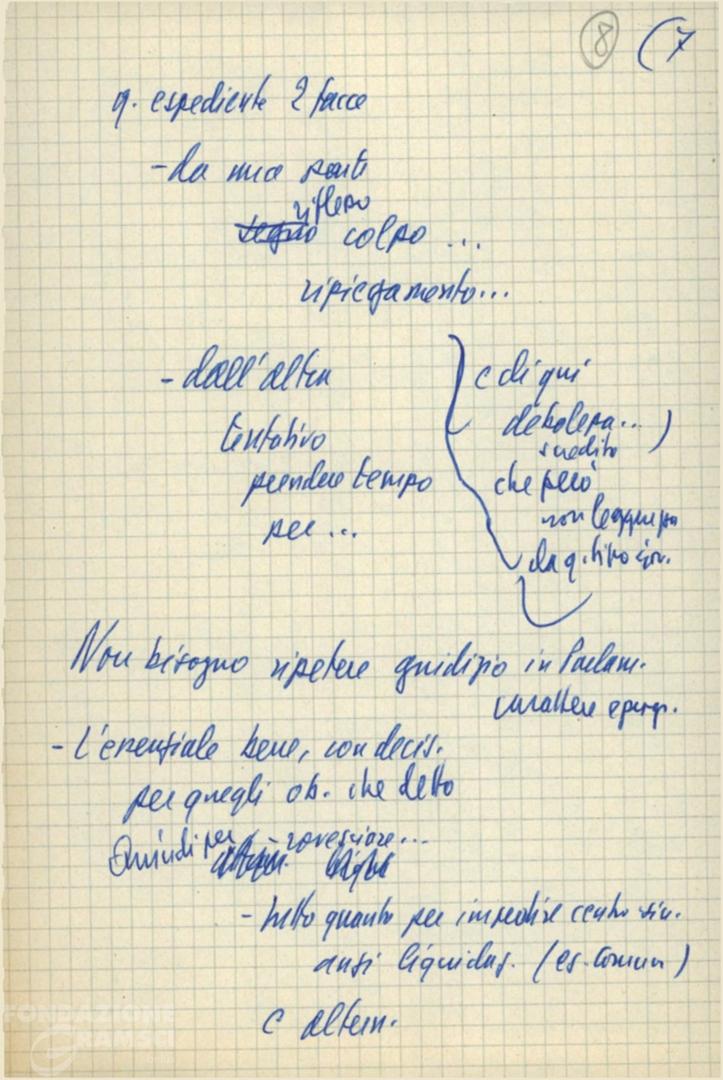 8 (7
q. espediente 2 facce
- da una parte
riflesso
colpo ...
ripiegamento...
- dall'altra
tentativo
prendere tempo
per ...
e di qui
debolezza... )
discredito
che però
non legge
da q. tipo
Non bisogna ripetere giudizio in Parlam.
carattere
- L'essenziale bene, con decis.
per quegli ob. che detto
Quindi per rovesciare...
- tutto quanto per impedire centro sin.
anzi liquidaz. (es. Comuni)
e altern.
FONDAZIONE
GRAMSCI